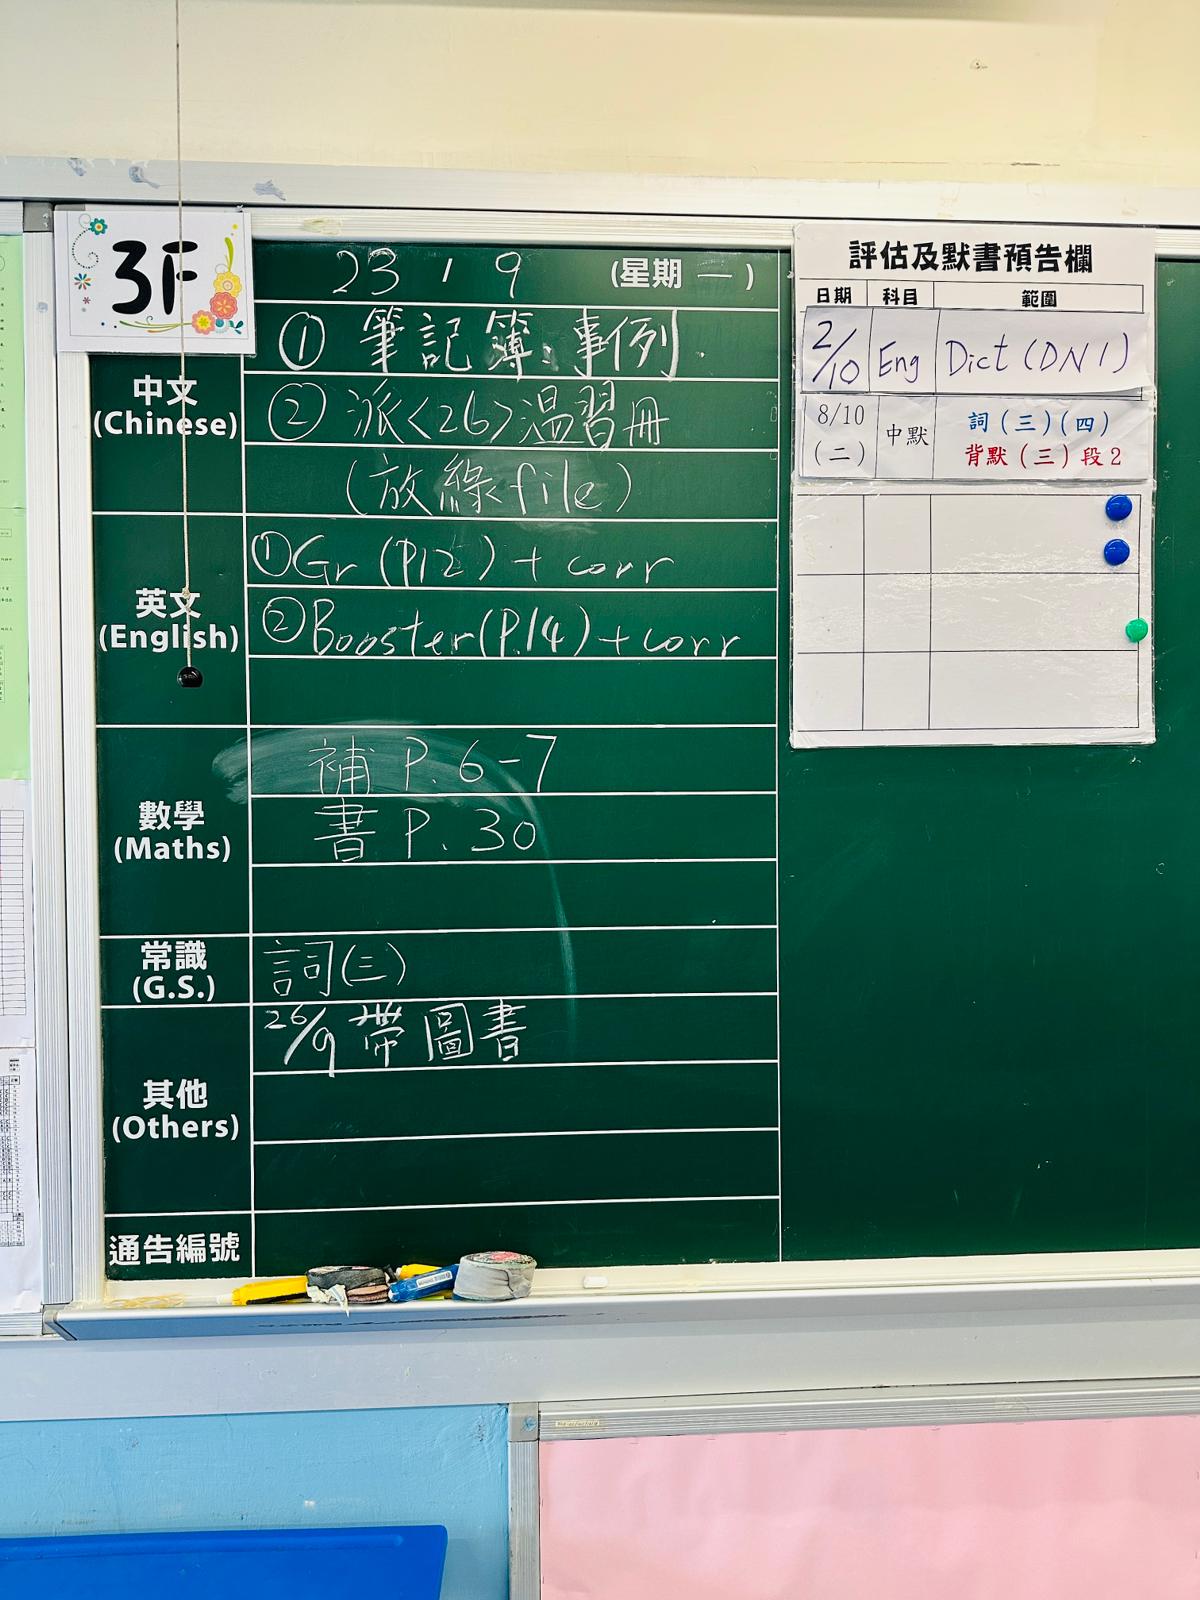 3F
23 / 9 (星期 一 )
中文
(Chinese)
① 筆記簿:事例
② 派<26>温習冊
(放綠file)
英文
(English)
①Gr (P.12) + corr
②Booster(P.14) + corr
數學
(Maths)
補 P. 6-7
書 P. 30
常識
(G.S.)
詞(三)
其他
(Others)
26/9 帶圖書
通告編號
評估及默書預告欄
日期 科目 範圍
2/10 Eng Dict (DN1)
8/10 (二) 中默 詞(三)(四)
背默(三)段2